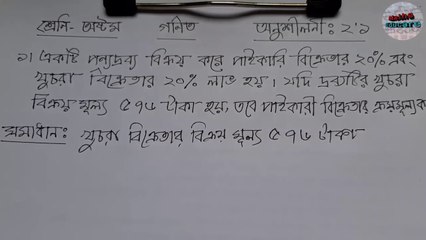 শ্রেণি- অষ্টম গনিত অনুশীলনী: ২.১
১। একটি পন্যদ্রব্য বিক্রয় করে পাইকারি বিক্রেতার ২০% এবং
খুচরা বিক্রেতার ২০% লাভ হয়। যদি দ্রব্যটির খুচরা
বিক্রয় মূল্য ৫৭৬ টাকা হয়, তবে পাইকারী বিক্রেতার ক্রয়মূল্য ক
সমাধান: খুচরা বিক্রেতার বিক্রয় মূল্য ৫৭৬ টাকা